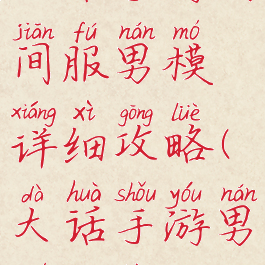 jiān fú nán mó
间服男模
xiáng xì gōng lüè
详细攻略(
dà huà shǒu yóu nán
大话手游男